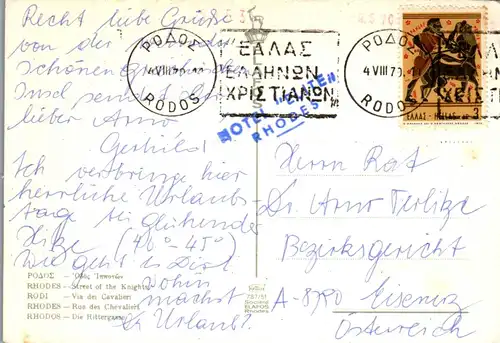 Recht liebe Grüße
von der
schönen griech.
Insel sendet dir
lieber Arno
Gerhild!
Ich verbringe hier
herrliche Urlaubs-
tage bei glühender
Hitze (40°-45°)
Wie geht es Dir?
Wohin
machst
Du Urlaub?
ΡΟΔΟΣ — Ὁδὸς Ἱπποτῶν
RHODES — Street of the Knights
RODI — Via dei Cavalieri
RHODES — Rue des Chevaliers
RHODOS — Die Rittergasse
787/51
RHODES
ΡΟΔΟΣ
4 VIII 70
RODOS
ΕΛΛΑΣ
ΕΛΛΗΝΩΝ
ΧΡΙΣΤΙΑΝΩΝ
ΡΟΔΟΣ
4 VIII 70
RODOS
ΕΛΛΑΣ - HELLAS
3
HOTEL
RHODES
Herrn Rat
Dr. Arno Terlitza
Bezirksgericht
A-8790 Eisenerz
Österreich